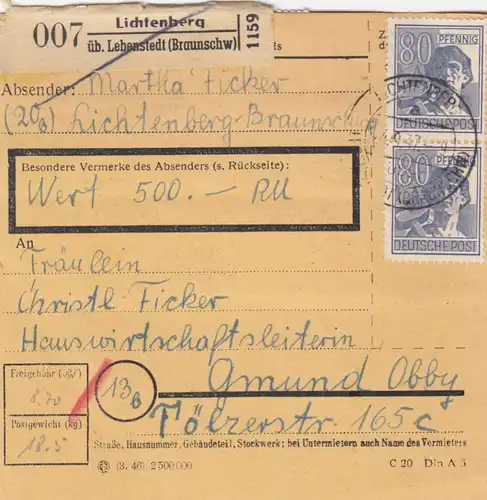 007
Lichtenberg
üb. Lebenstedt (Braunschw)
1159
80 PFENNIG
DEUTSCHE POST
Absender: Martha Ficker
(20a) Lichtenberg-Braunschwg
Besondere Vermerke des Absenders (s. Rückseite):
Wert 500.— RM
80 PFENNIG
DEUTSCHE POST
An
Fräulein
Christl Ficker
Hauswirtschaftsleiterin
Freigebühr
13b
Gmund Obby
Postgewicht (kg)
18.5
Tölzerstr 165c
Straße, Hausnummer, Gebäudeteil, Stockwerk; bei Untermietern auch Name des Vermieters
(3. 46) 2 500 000
C 20 Din A 6